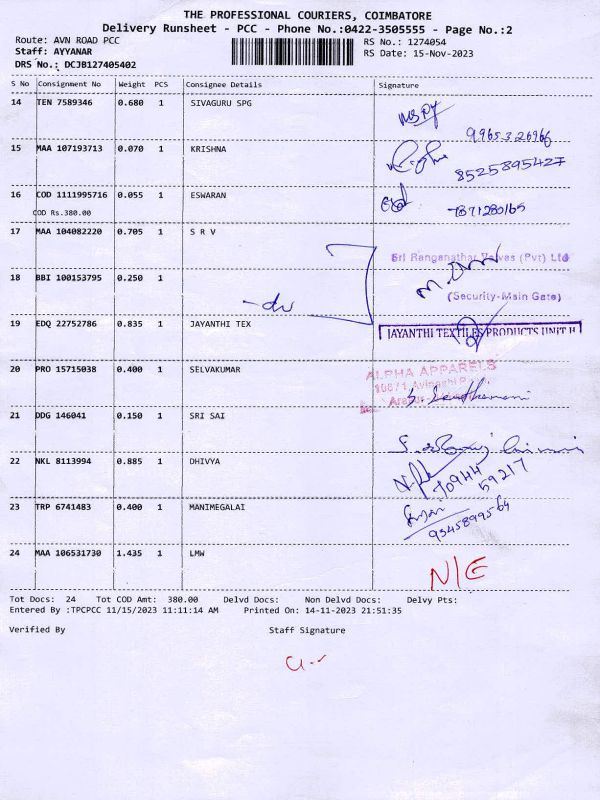 THE PROFESSIONAL COURIERS, COIMBATORE
Delivery Runsheet - PCC - Phone No.:0422-3505555 - Page No.:2
Route: AVN ROAD PCC
RS No.: 1274054
Staff: AYYANAR
RS Date: 15-Nov-2023
DRS No.: DCJB127405402
S No Consignment No Weight PCS Consignee Details Signature
14 TEN 7589346 0.680 1 SIVAGURU SPG
9965326966
15 MAA 107193713 0.070 1 KRISHNA
8525895427
16 COD 1111995716 0.055 1 ESWARAN
7871280165
COD Rs.380.00
17 MAA 104082220 0.705 1 S R V
Sri Ranganathar Valves (Pvt) Ltd
18 BBI 100153795 0.250 1
(Security-Main Gate)
19 EDQ 22752786 0.835 1 JAYANTHI TEX
JAYANTHI TEXTILES PRODUCTS UNIT II
20 PRO 15715038 0.400 1 SELVAKUMAR
ALPHA APPARELS
21 DDG 146041 0.150 1 SRI SAI
22 NKL 8113994 0.885 1 DHIVYA
70944
59217
23 TRP 6741483 0.400 1 MANIMEGALAI
9345899564
24 MAA 106531730 1.435 1 LMW
N/E
Tot Docs: 24 Tot COD Amt: 380.00 Delvd Docs: Non Delvd Docs: Delvy Pts:
Entered By :TPCPCC 11/15/2023 11:11:14 AM Printed On: 14-11-2023 21:51:35
Verified By Staff Signature